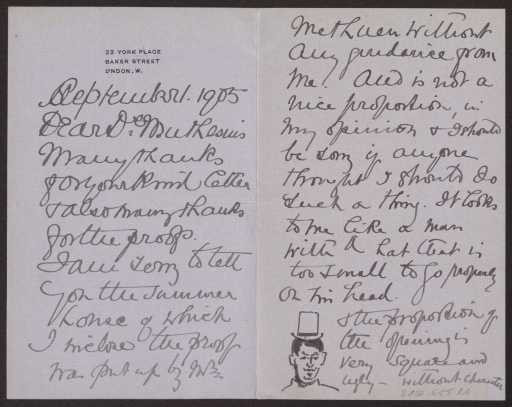 23 YORK PLACE
BAKER STREET
LONDON, W.
September 1. 1905
Dear Dr. Muthesius
Many thanks
for your kind letter
& also many thanks
for the proofs.
I am sorry to tell
you the summer
house of which
I inclose the proof
was put up by Mrs
Methuen without
any guidance from
me. And is not a
nice proportion, in
my opinion & I should
be sorry if anyone
thought I should do
such a thing. It looks
to me like a man
with a hat that is
too small to go properly
on his head.
& the proportion of
the opening is
very square and
ugly - without character